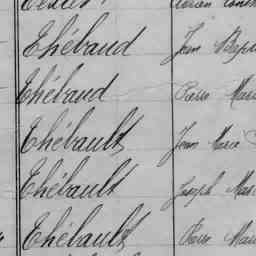 Thébaud Jean Bapt
Thébaud Pierre Marie
Thébault Jean Marie
Thébault Joseph Mar
Thébault Pierre Marie